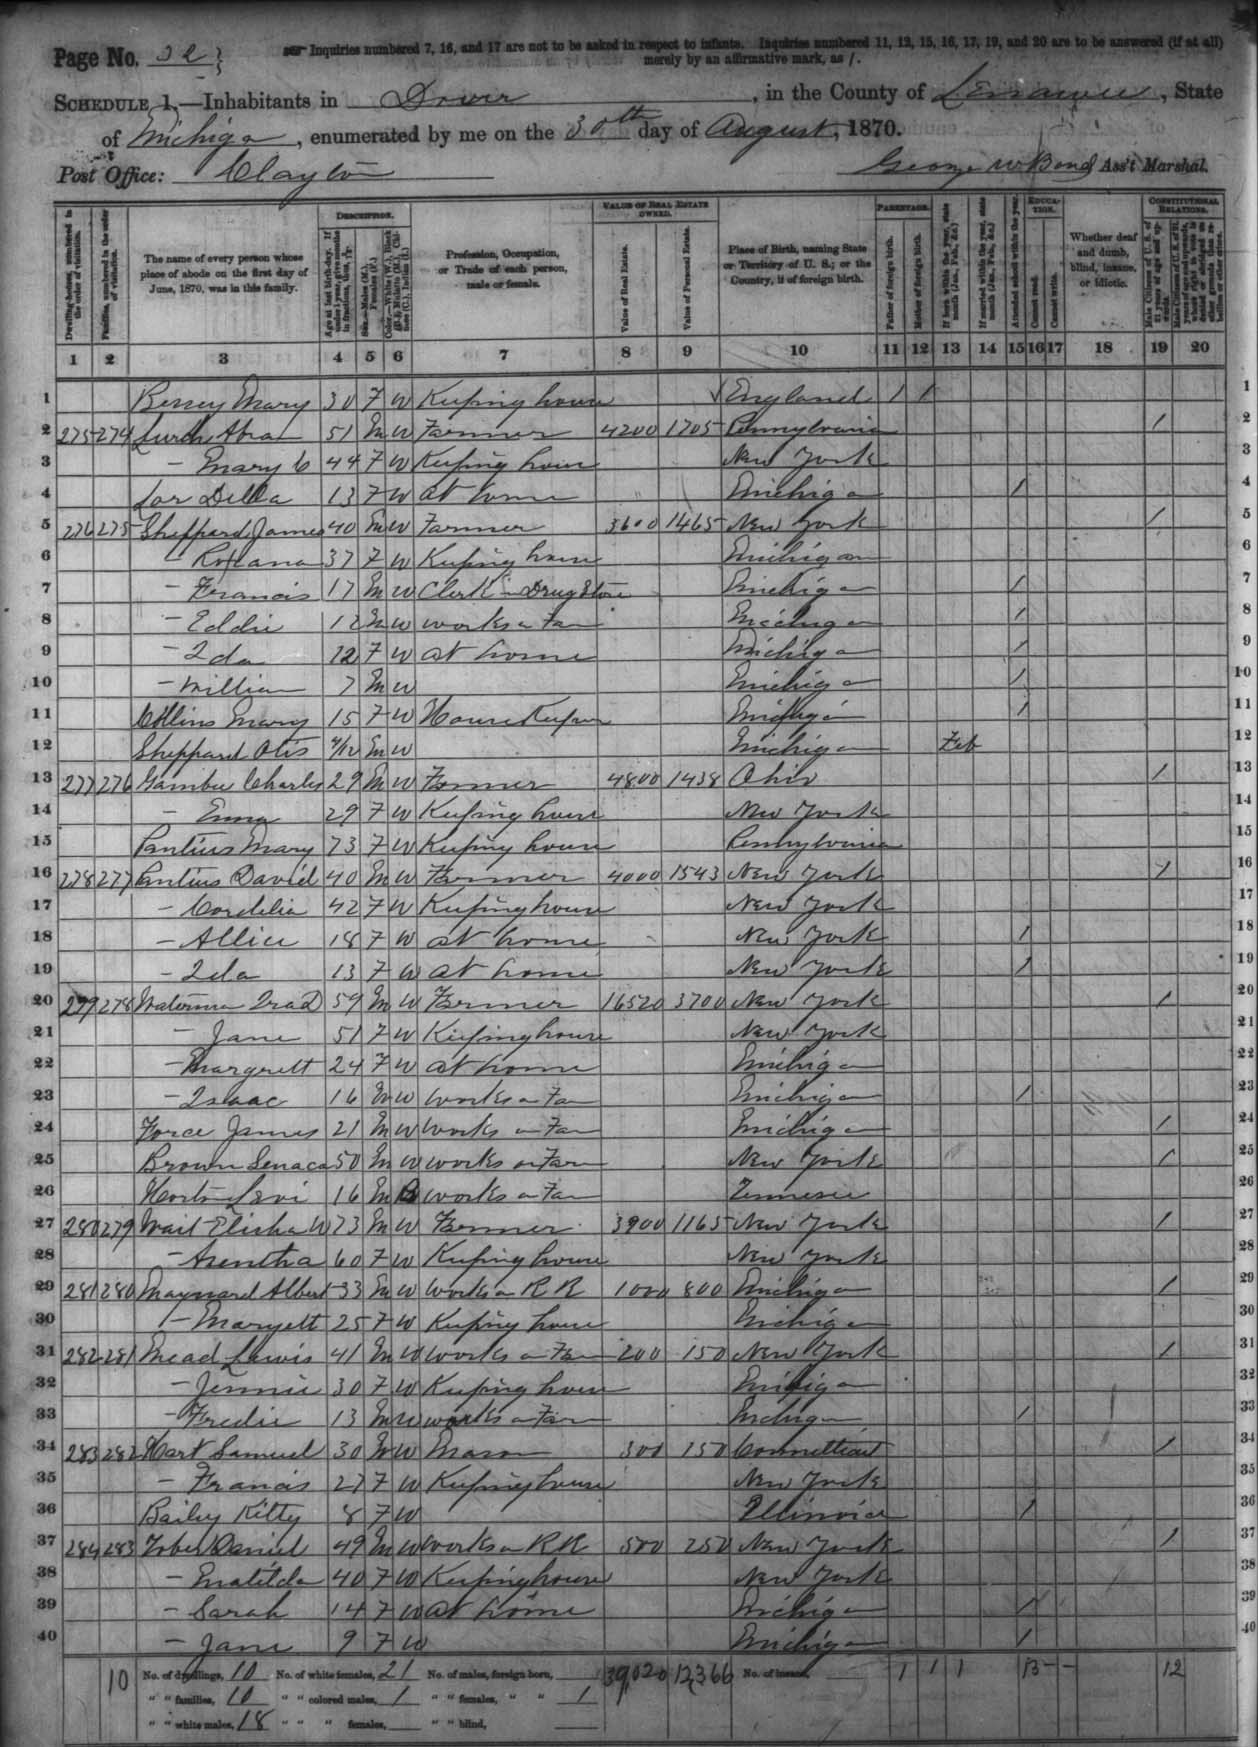 Page No. 32
Inquiries numbered 7, 16, and 17 are not to be asked in respect to infants. Inquiries numbered 11, 12, 15, 16, 17, 19, and 20 are to be answered (if at all)
merely by an affirmative mark, as /.
Schedule 1.—Inhabitants in Dover, in the County of Lenawee, State
of Michigan, enumerated by me on the 30th day of August, 1870.
Post Office: Clayton
George W Bond Ass't Marshal.
Description. Value of Real Estate owned. Parentage. Education. Constitutional Relations.
Dwelling-houses, numbered in the order of visitation.
Families, numbered in the order of visitation.
The name of every person whose place of abode on the first day of June, 1870, was in this family.
Age at last birth-day. If under 1 year, give months in fractions, thus, 3/12.
Sex.—Males (M.), Females (F.)
Color.—White (W.), Black (B.), Mulatto (M.), Chinese (C.), Indian (I.)
Profession, Occupation, or Trade of each person, male or female.
Value of Real Estate.
Value of Personal Estate.
Place of Birth, naming State or Territory of U. S.; or the Country, if of foreign birth.
Father of foreign birth.
Mother of foreign birth.
If born within the year, state month (Jan., Feb., &c.)
If married within the year, state month (Jan., Feb., &c.)
Attended school within the year.
Cannot read.
Cannot write.
Whether deaf and dumb, blind, insane, or idiotic.
Male Citizens of U. S. of 21 years of age and upwards.
1 2 3 4 5 6 7 8 9 10 11 12 13 14 15 16 17 18 19 20
1 Mary 30 F W Keeping house England / / 1
2 275 274 Abram 51 M W Farmer 4200 1705 Pennsylvania / 2
3 – Mary C 44 F W Keeping house New York 3
4 Della 13 F W at home Michigan / 4
5 276 275 Sheppard James 40 M W Farmer 3600 1465 New York / 5
6 – Roxana 37 F W Keeping house Michigan 6
7 – Francis 17 M W Clerk in Drug Store Michigan / 7
8 – Eddie 12 M W works on Farm Michigan / 8
9 – Ida 12 F W at home Michigan / 9
10 – William 7 M W Michigan / 10
11 Collins Mary 15 F W House Keeper Michigan / 11
12 Sheppard Otis 4/12 M W Michigan Feb 12
13 277 276 Gambee Charles 29 M W Farmer 4800 1438 Ohio / 13
14 – Emma 29 F W Keeping house New York 14
15 Pontius Mary 73 F W Keeping house Pennsylvania 15
16 278 277 Pontius David 40 M W Farmer 4000 1543 New York / 16
17 – Cordelia 42 F W Keeping house New York 17
18 – Allice 18 F W at home New York / 18
19 – Ida 13 F W at home New York / 19
20 279 278 Waterman Ira D 59 M W Farmer 16520 3700 New York / 20
21 – Jane 51 F W Keeping house New York 21
22 – Margrett 24 F W at home Michigan 22
23 – Isaac 16 M W works on Farm Michigan / 23
24 Force James 21 M W works on Farm Michigan / 24
25 Brown Senaca 50 M W works on Farm New York / 25
26 Horton Levi 16 M B works on Farm Tennesee 26
27 280 279 Wait Elisha W 73 M W Farmer 3900 1165 New York / 27
28 – Arentha 60 F W Keeping house New York 28
29 281 280 Maynard Albert 33 M W works on R R 1000 800 Michigan / 29
30 – Maryett 25 F W Keeping house Michigan 30
31 282 281 Mead Lewis 41 M W works on Farm 200 150 New York / 31
32 – Jennie 30 F W Keeping house Michigan 32
33 – Fredie 13 M W works on Farm Michigan / 33
34 283 282 Hart Samuel 30 M W Mason 300 150 Connetticut / 34
35 – Francis 27 F W Keeping house New York 35
36 Bailey Kitty 8 F W Illinoice / 36
37 284 283 Daniel 49 M W works on R R 500 250 New York / 37
38 – Matilda 40 F W Keeping house New York 38
39 – Sarah 14 F W at home Michigan / 39
40 – Jane 9 F W Michigan / 40
10 No. of dwellings, 10 No. of white females, 21 No. of males, foreign born, 39,020 12,366 No. of insane, 1 1 1 13 – – 12
" " families, 10 " " colored males, 1 " " females, " " 1
" " white males, 18 " " " females, " " blind,